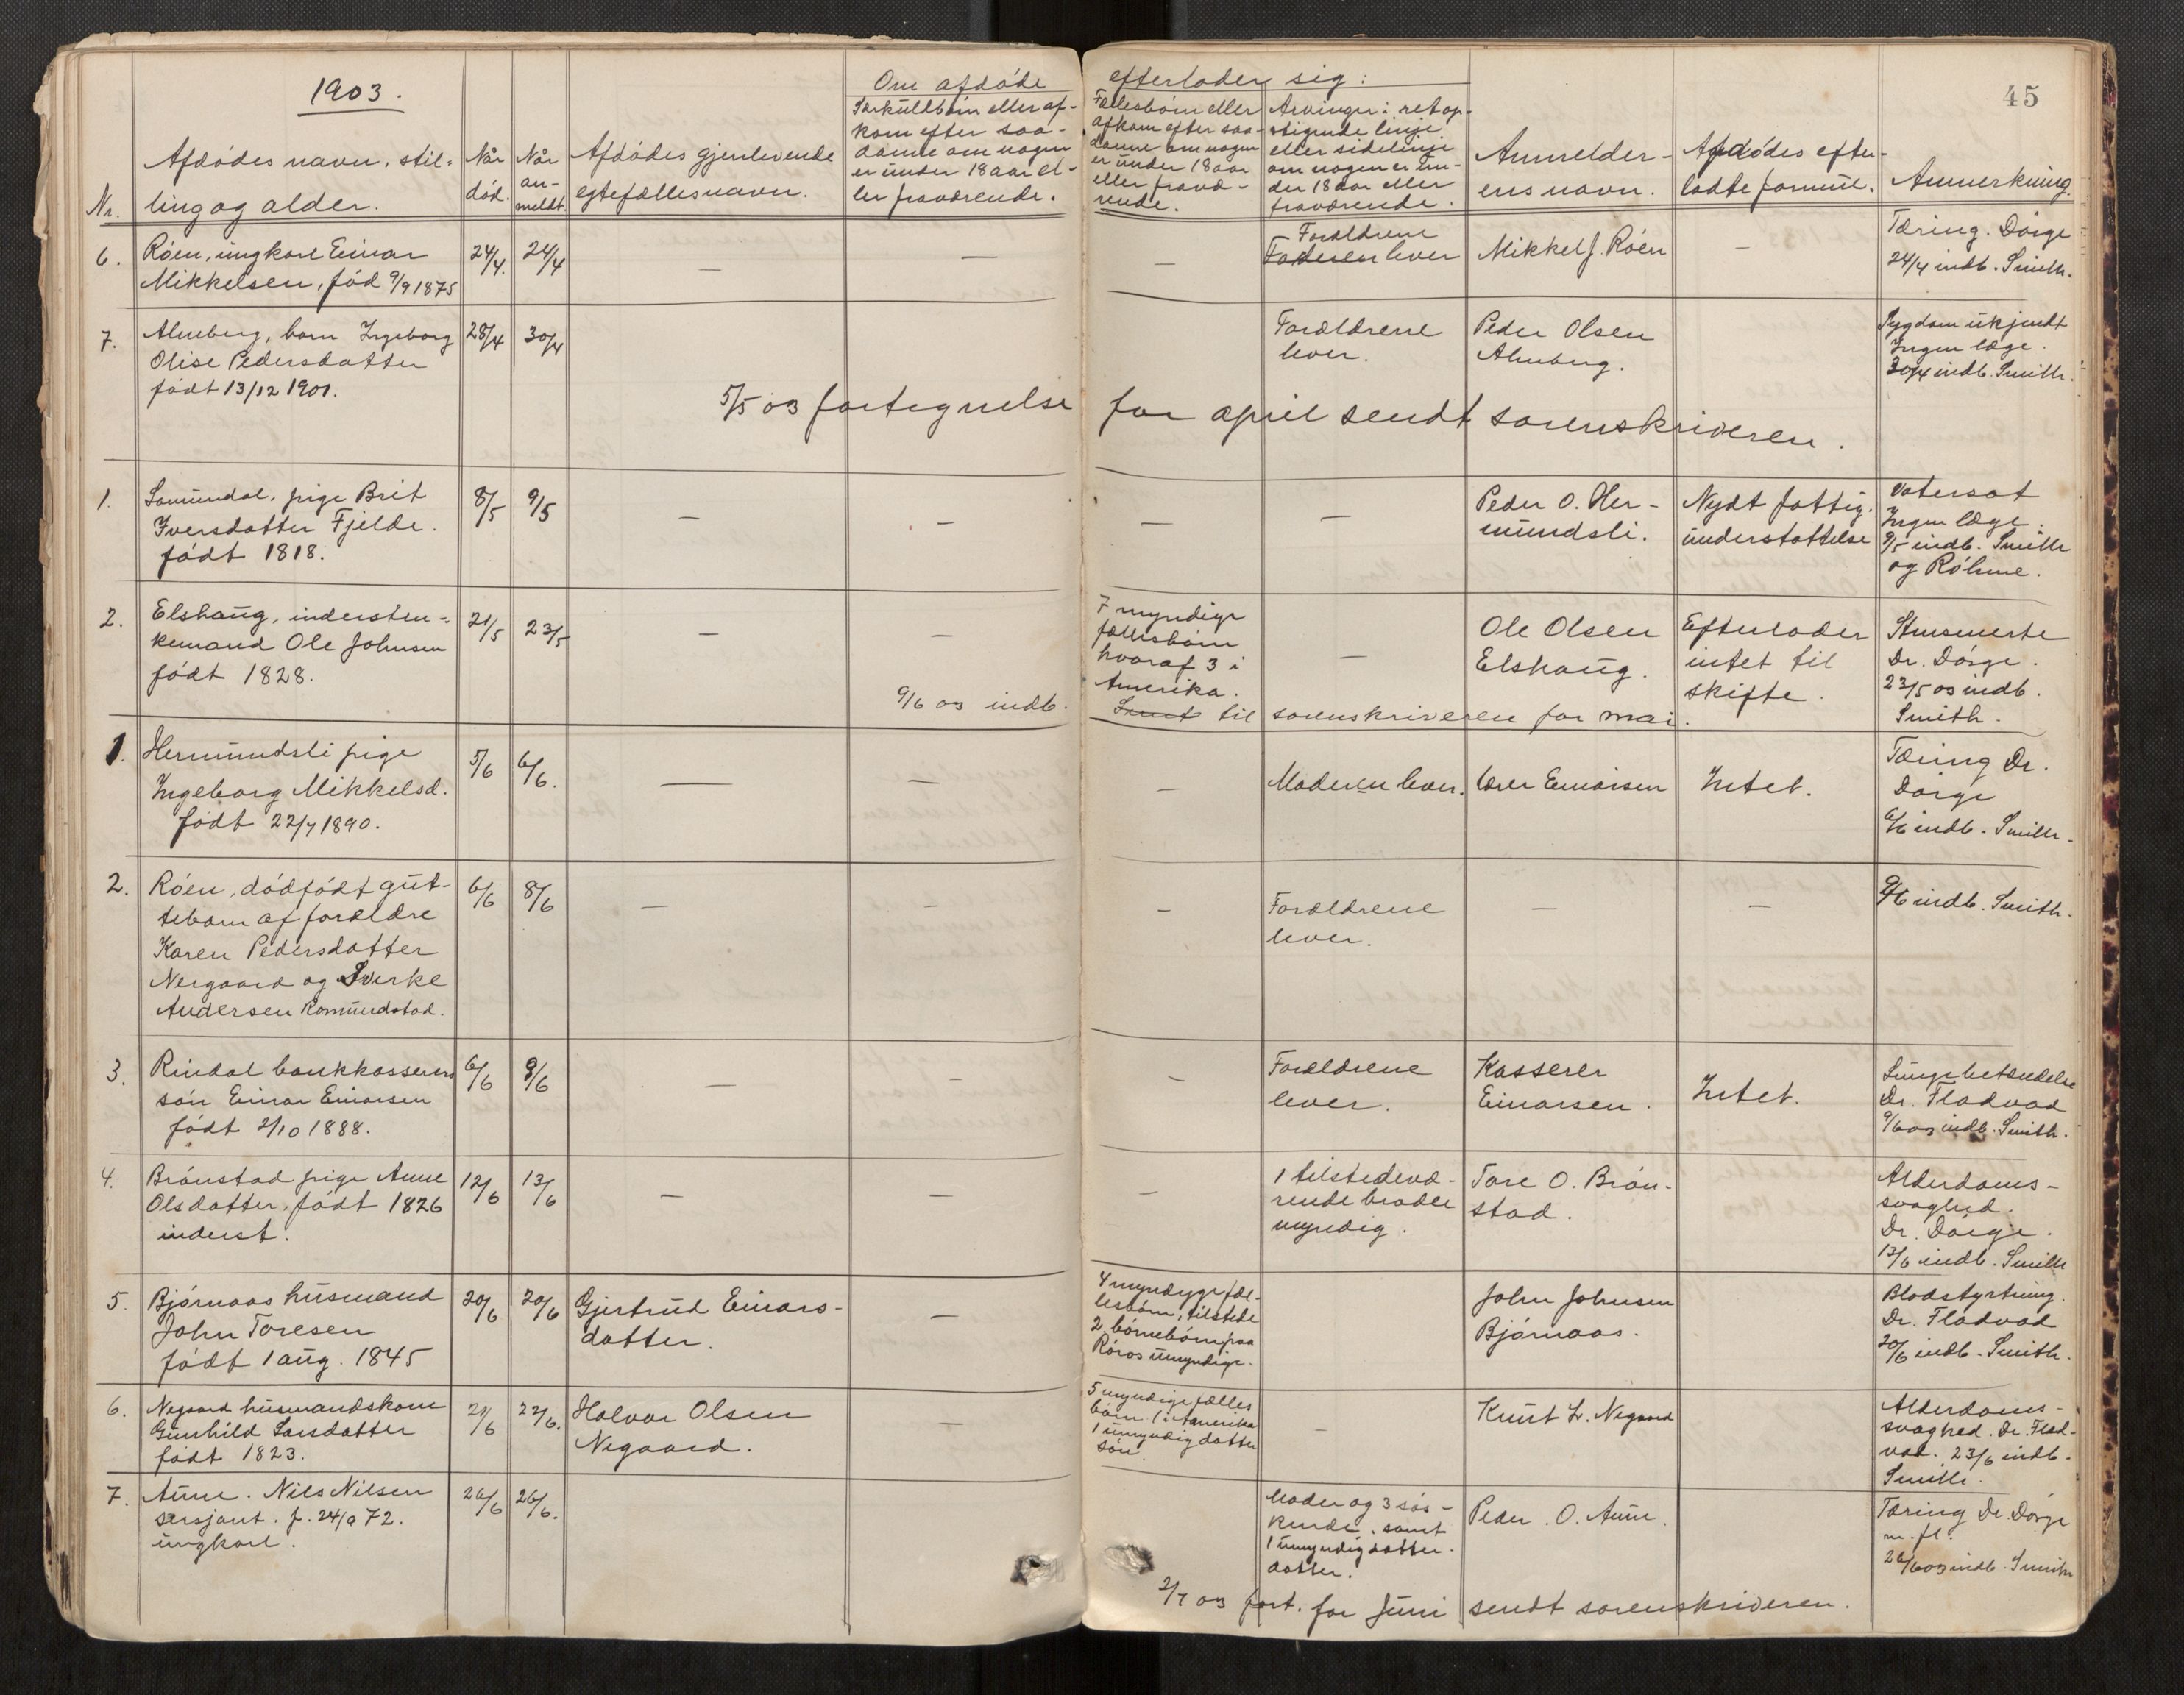 1903.
45
Om afdöde efterlader sig:
Nr.
Afdödes navn, stil-
ling og alder.
Når
död.
Når
an-
meldt.
Afdödes gjenlevende
egtefællesnavn.
Særkuldbörn eller af-
kom efter saa-
danne om nogen
er under 18 aar el-
ler fraværende.
Fællesbörn eller
afkom efter saa-
danne om nogen
er under 18 aar
eller fravæ-
rende.
Arvinger i ret op-
stigende linje
eller sidelinje
om nogen er un-
der 18 aar eller
fraværende.
Anmelder-
ens navn.
Afdödes efter-
ladte formue.
Anmerkning.
6.
Röen, ungkarl Einar
Mikkelsen, föd 9/9 1875
24/4.
24/4
—
—
—
Forældrene
Faderen lever
Mikkel J. Röen
—
Tæring. Dörge
24/4 indb. Smith.
7.
Almberg, barn Ingeborg
Olise Pedersdatter
födt 13/12 1901.
28/4
30/4
Forældrene
lever.
Peder Olsen
Almberg.
Sygdom ukjendt
Ingen læge.
30/4 indb. Smith.
5/5 03 fortegnelse for april sendt sorenskriveren.
1.
Lomundal, pige Brit
Iversdatter Fjelde.
födt 1818.
8/5
9/5
—
—
—
—
Peder O. Her-
mundsli.
Nydt fattig-
understøttelse
Vatersot
Ingen læge.
9/5 indb. Smith
og Röhme.
2.
Elshaug, indersten-
kemand Ole Johnsen
födt 1828.
21/5
23/5
—
—
7 myndige
fællesbörn
hvoraf 3 i
Amerika.
—
Ole Olsen
Elshaug.
Efterlader
intet til
skifte.
Dr. Dörge.
23/5 03 indb.
Smith.
9/6 03 indb. Sendt til sorenskriveren for mai.
1.
Hermundsli pige
Ingeborg Mikkelsd.
födt 22/7 1890.
5/6
6/6.
—
—
—
Moderen lever.
Einarsen
Intet.
Tæring Dr.
Dörge
6/6 indb. Smith.
2.
Röen, dödfödt gut-
tebarn af forældre
Karen Pedersdatter
Nergaard og Sverke
Andersen Romundstad.
6/6
8/6
—
—
—
Forældrene
lever.
—
—
9/6 indb. Smith.
3.
Rindal bankkasserers
sön Einar Einarsen
födt 2/10 1888.
6/6
9/6
—
—
—
Forældrene
lever.
Kasserer
Einarsen.
Intet.
Lungebetændelse
Dr. Fladvad
9/6 03 indb. Smith.
4.
Brönstad pige Anne
Olsdatter, födt 1826
inderst.
12/6
13/6
—
—
—
1 tilstedevæ-
rende broder
myndig.
Tore O. Brön-
stad.
Alderdoms-
svaghed.
Dr. Dörge.
13/6 indb. Smith
5.
Bjørnaas husmand
John Toresen
födt 1 aug. 1845
20/6
20/6
Gjertrud Einars-
datter.
—
4 myndyge fæl-
lesbörn, tilstede
2 börnebörn paa
Röros umyndige.
John Johnsen
Bjørnaas.
Blodstyrtning.
Dr. Fladvad
20/6 indb. Smith.
6.
Negaard husmandskone
Gunhild Larsdatter
födt 1823.
21/6
22/6.
Halvor Olsen
Negaard.
—
5 myndige fælles
börn 1 i Amerika
1 umyndig datter
sön
—
Knut L. Negaard
Alderdoms-
svaghed. Dr. Flad-
vad. 23/6 indb.
Smith.
7.
Aune. Nils Nilsen
sersjant. f. 24/9 72.
ungkarl.
26/6
26/6.
Moder og 3 sös-
kende. samt
1 umyndig datter-
datter.
Peder. O. Aune.
Tæring Dr. Dörge
m. fl.
26/6 03 indb. Smith
2/7 03 fort. for Juni sendt sorenskriveren.